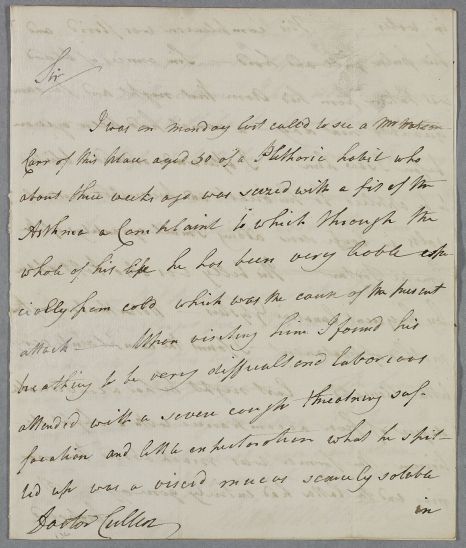 Sir
I was on monday last called to see a Mr
Carr of this place aged 30 of a Plethoric habit who
about three weeks ago was seized with a fit of the
Asthma a Complaint to which through the
whole of his life he has been very liable espe
cially from cold which was the cause of the present
attack — Upon visiting him I found his
breathing to be very difficult and laborious
attended with a severe cough threatning suf-
focation and little expectoration what he spit-
ted up was a viscid mucus scarcely soluble
Doctor Cullen in